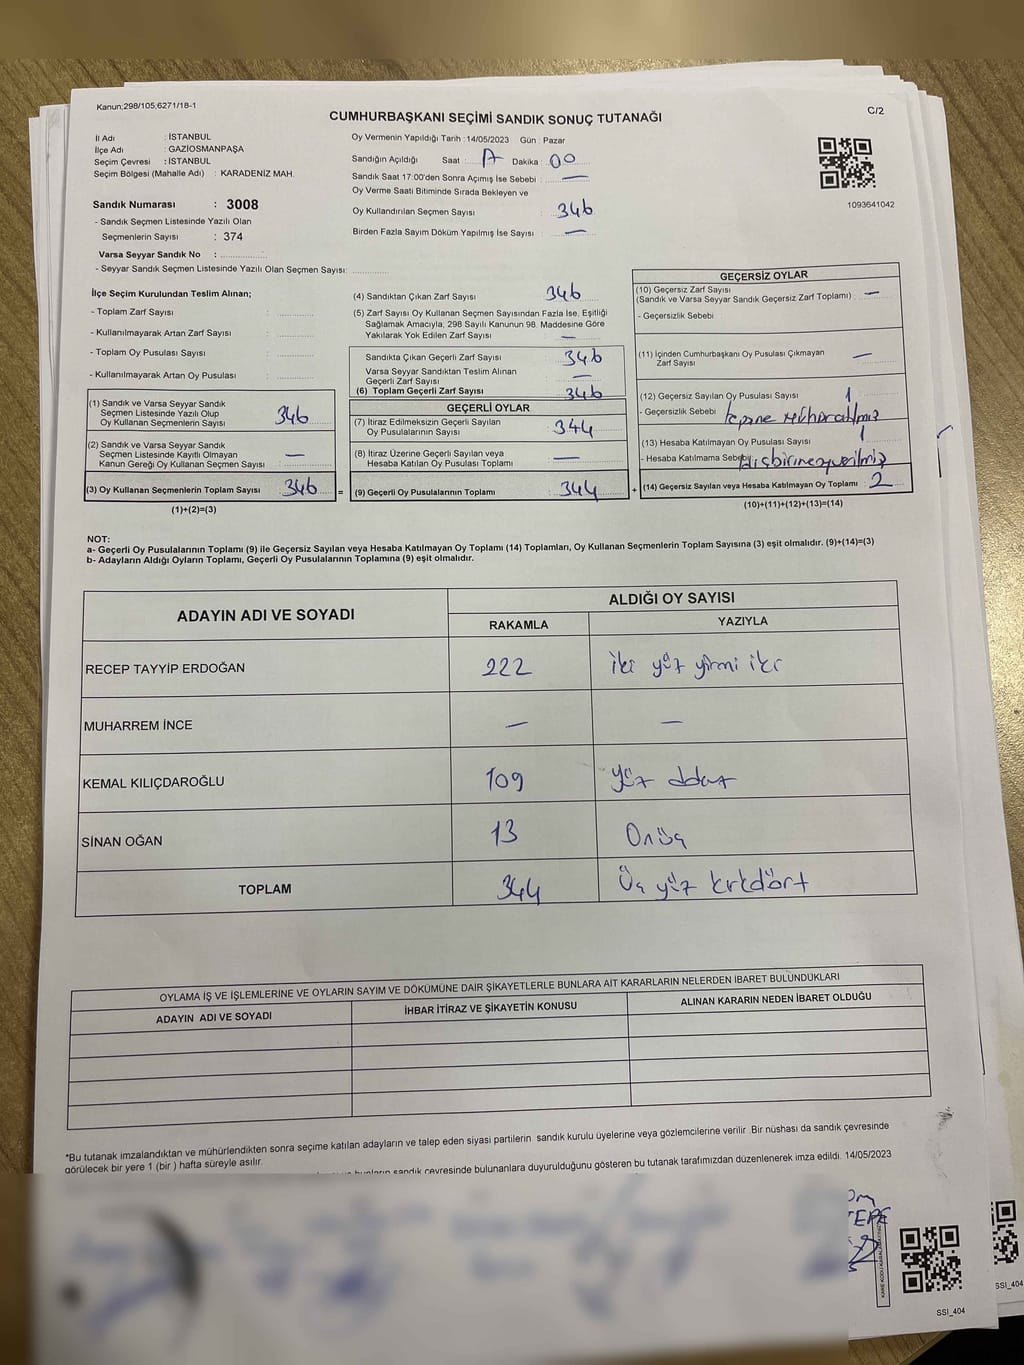 Kanun;298/105;6271/18-1
C/2
CUMHURBAŞKANI SEÇİMİ SANDIK SONUÇ TUTANAĞI
İl Adı : İSTANBUL
İlçe Adı : GAZİOSMANPAŞA
Seçim Çevresi : İSTANBUL
Seçim Bölgesi (Mahalle Adı) : KARADENİZ MAH.
Sandık Numarası : 3008
- Sandık Seçmen Listesinde Yazılı Olan
Seçmenlerin Sayısı : 374
Varsa Seyyar Sandık No : ..................
- Seyyar Sandık Seçmen Listesinde Yazılı Olan Seçmen Sayısı: ..............
Oy Vermenin Yapıldığı Tarih : 14/05/2023 Gün : Pazar
Sandığın Açıldığı Saat : Dakika : 00
Sandık Saat 17:00'den Sonra Açılmış İse Sebebi : —
Oy Verme Saati Bitiminde Sırada Bekleyen ve
Oy Kullandırılan Seçmen Sayısı : 346
Birden Fazla Sayım Döküm Yapılmış İse Sayısı : —
1093641042
İlçe Seçim Kurulundan Teslim Alınan;
- Toplam Zarf Sayısı : ..............
- Kullanılmayarak Artan Zarf Sayısı : ..............
- Toplam Oy Pusulası Sayısı : ..............
- Kullanılmayarak Artan Oy Pusulası : ..............
(1) Sandık ve Varsa Seyyar Sandık
Seçmen Listesinde Yazılı Olup
Oy Kullanan Seçmenlerin Sayısı : 346
(2) Sandık ve Varsa Seyyar Sandık
Seçmen Listesinde Kayıtlı Olmayan
Kanun Gereği Oy Kullanan Seçmen Sayısı : —
(3) Oy Kullanan Seçmenlerin Toplam Sayısı : 346 =
(1)+(2)=(3)
(4) Sandıktan Çıkan Zarf Sayısı : 346
(5) Zarf Sayısı Oy Kullanan Seçmen Sayısından Fazla İse, Eşitliği
Sağlamak Amacıyla, 298 Sayılı Kanunun 98. Maddesine Göre
Yakılarak Yok Edilen Zarf Sayısı : —
Sandıkta Çıkan Geçerli Zarf Sayısı : 346
Varsa Seyyar Sandıktan Teslim Alınan
Geçerli Zarf Sayısı : —
(6) Toplam Geçerli Zarf Sayısı : 346
GEÇERLİ OYLAR
(7) İtiraz Edilmeksizin Geçerli Sayılan
Oy Pusulalarının Sayısı : 344
(8) İtiraz Üzerine Geçerli Sayılan veya
Hesaba Katılan Oy Pusulası Toplamı : —
(9) Geçerli Oy Pusulalarının Toplamı : 344 +
GEÇERSİZ OYLAR
(10) Geçersiz Zarf Sayısı
(Sandık ve Varsa Seyyar Sandık Geçersiz Zarf Toplamı) : —
- Geçersizlik Sebebi :
(11) İçinden Cumhurbaşkanı Oy Pusulası Çıkmayan
Zarf Sayısı : —
(12) Geçersiz Sayılan Oy Pusulası Sayısı : 1
- Geçersizlik Sebebi :
(13) Hesaba Katılmayan Oy Pusulası Sayısı : 1
- Hesaba Katılmama Sebebi:
(14) Geçersiz Sayılan veya Hesaba Katılmayan Oy Toplamı : 2
(10)+(11)+(12)+(13)=(14)
NOT:
a- Geçerli Oy Pusulalarının Toplamı (9) ile Geçersiz Sayılan veya Hesaba Katılmayan Oy Toplamı (14) Toplamları, Oy Kullanan Seçmenlerin Toplam Sayısına (3) eşit olmalıdır. (9)+(14)=(3)
b- Adayların Aldığı Oyların Toplamı, Geçerli Oy Pusulalarının Toplamına (9) eşit olmalıdır.
ADAYIN ADI VE SOYADI
ALDIĞI OY SAYISI
RAKAMLA YAZIYLA
RECEP TAYYİP ERDOĞAN 222 iki yüz yirmi iki
MUHARREM İNCE — —
KEMAL KILIÇDAROĞLU 109 yüz dokuz
SİNAN OĞAN 13 Onüç
TOPLAM 344 Üç yüz kırkdört
OYLAMA İŞ VE İŞLEMLERİNE VE OYLARIN SAYIM VE DÖKÜMÜNE DAİR ŞİKAYETLERLE BUNLARA AİT KARARLARIN NELERDEN İBARET BULUNDUKLARI
ADAYIN ADI VE SOYADI İHBAR İTİRAZ VE ŞİKAYETİN KONUSU ALINAN KARARIN NEDEN İBARET OLDUĞU
*Bu tutanak imzalandıktan ve mühürlendikten sonra seçime katılan adayların ve talep eden siyasi partilerin sandık kurulu üyelerine veya gözlemcilerine verilir .Bir nüshası da sandık çevresinde
görülecek bir yere 1 (bir ) hafta süreyle asılır.
sandık çevresinde bulunanlara duyurulduğunu gösteren bu tutanak tarafımızdan düzenlenerek imza edildi. 14/05/2023
TEPE
SSI_404
SSI_404